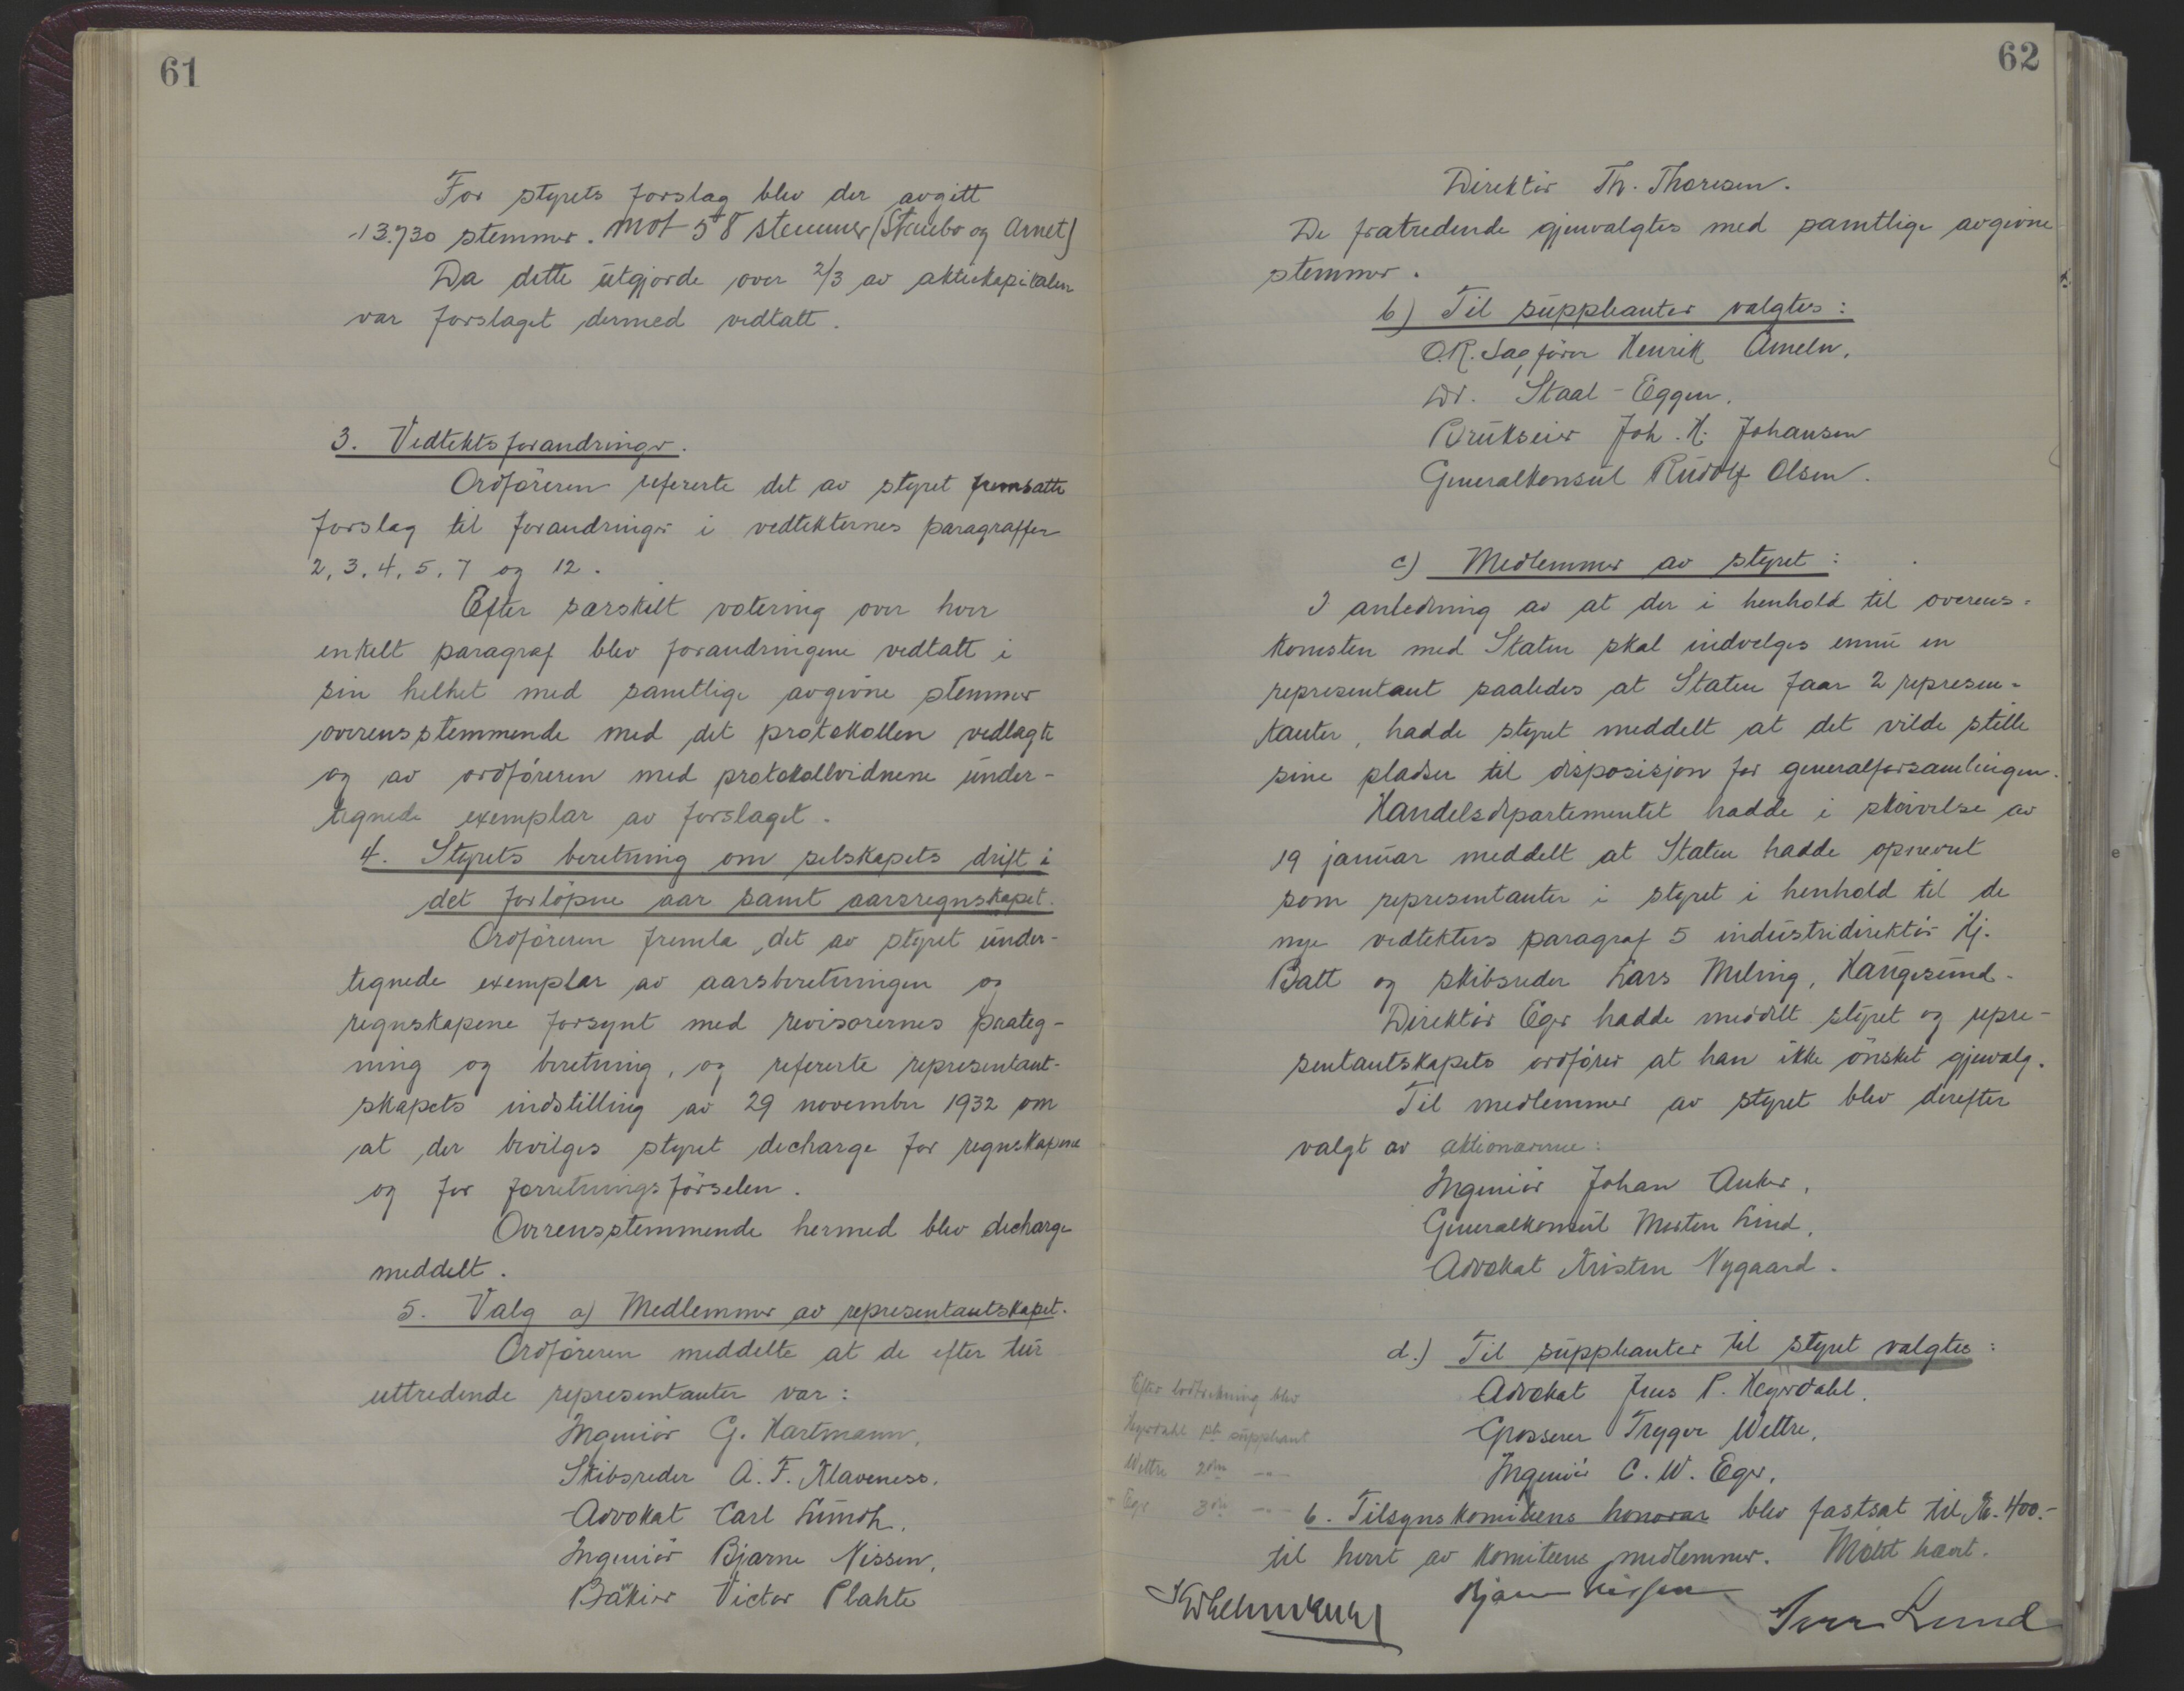 61
For styrets forslag blev der avgitt
13.730 stemmer. mot 58 stemmer (Staubo og Arnet)
Da dette utgjorde over 2/3 av aktiekapitalen
var forslaget dermed vedtatt.
3. Vedtektsforandringer.
Ordføreren refererte det av styret fremsatte
forslag til forandringer i vedtekternes paragraffer
2, 3, 4, 5, 7 og 12.
Efter særskilt votering over hver
enkelt paragraf blev forandringene vedtatt i
sin helhet med samtlige avgivne stemmer
overensstemmende med det protokollen vedlagte
og av ordføreren med protokollvidnene under-
tegnede exemplar av forslaget.
4. Styrets beretning om selskapets drift i
det forløpne aar samt aarsregnskapet.
Ordføreren fremla det av styret under-
tegnede exemplar av aarsberetningen og
regnskapene forsynt med revisorernes paateg-
ning og beretning, og refererte representant-
skapets indstilling av 29 november 1932 om
at der bevilges styret decharge for regnskapene
og for forretningsførselen.
Overensstemmende hermed blev decharge
meddelt.
5. Valg a) Medlemmer av representantskapet.
Ordføreren meddelte at de efter tur
uttredende representanter var:
Ingeniør G. Hartmann,
Skibsreder A. F. Klaveness,
Advokat Carl Lundh,
Ingeniør Bjarne Nissen,
Bankier Victor Plahte
62
Direktør Th. Thoresen.
De fratredende gjenvalgtes med samtlige avgivne
stemmer.
b) Til suppleanter valgtes:
O.R. Sagfører Henrik Ameln,
Dr. Staal-Eggen,
Brukseier Joh. H. Johansen
Generalkonsul Rudolf Olsen.
c) Medlemmer av styret:
I anledning av at der i henhold til overens-
komsten med Staten skal indvelges ennu en
representant saaledes at Staten faar 2 represen-
tanter, hadde styret meddelt at det vilde stille
sine pladser til disposisjon for generalforsamlingen.
Handelsdepartementet hadde i skrivelse av
19 januar meddelt at Staten hadde opnevnt
som representanter i styret i henhold til de
nye vedtekters paragraf 5 industridirektør Hj.
Batt og skibsreder Lars Meling, Haugesund.
Direktør Eger hadde meddelt styret og repre-
sentantskapets ordfører at han ikke ønsket gjenvalg.
Til medlemmer av styret blev derefter
valgt av aktionærerne:
Ingeniør Johan Anker,
Generalkonsul Morten Lind,
Advokat Kristen Nygaard.
d.) Til suppleanter til styret valgtes:
Advokat Jens P. Heyerdahl,
Grosserer Trygve Wettre,
Ingeniør C. W. Eger.
Efter lodtrekning blev
Heyerdahl 1ste suppleant
Wettre 2den —"—
Eger 3die —"—
6. Tilsynskomiteens honorar blev fastsat til Kr. 400.-
til hvert av komiteens medlemmer. Møtet hævt.
Bjarne Nissen
Lund